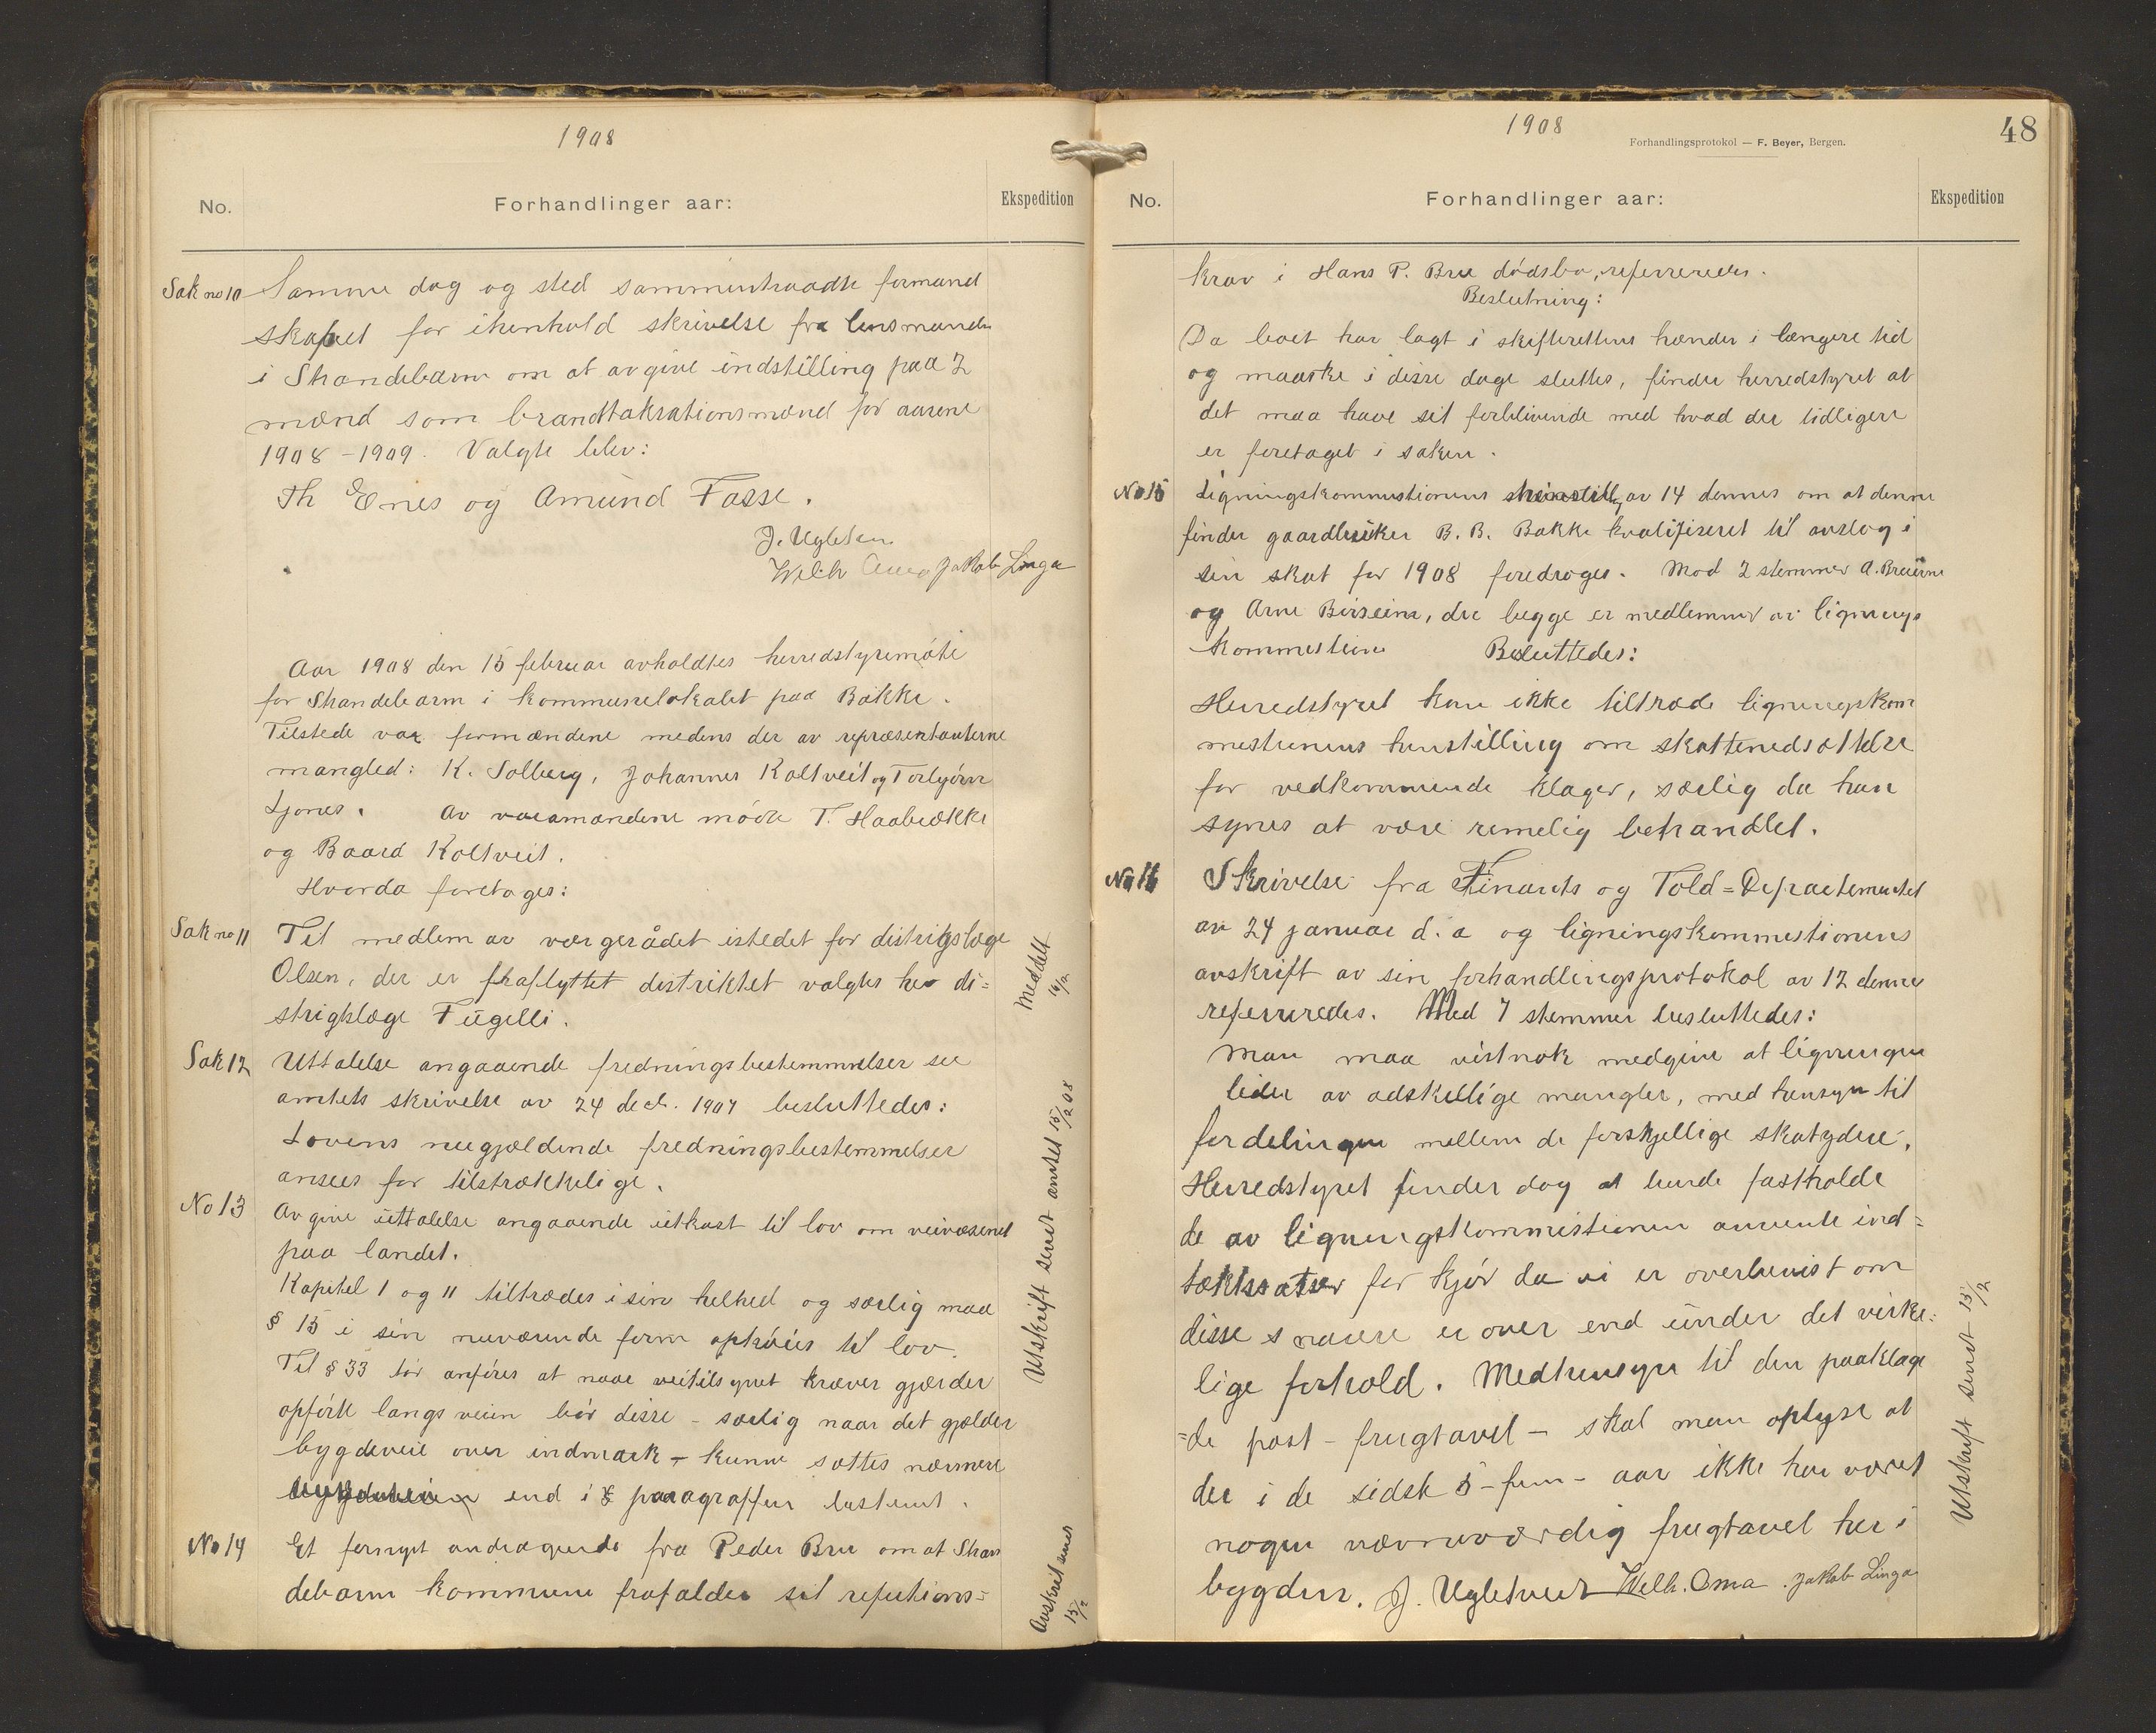 1908
No.
Forhandlinger aar:
Ekspedition
Sak no 10 Samme dag og sted sammentraadte formand
skapet for ihenhold skrivelse fra lensmanden
i Strandebarm om at avgive indstilling paa 2
mænd som brandtakstationsmænd for aarene
1908-1909. Valgte blev:
Th Enes og Amund Fosse.
J. Ugletveit
Welh Oma Jakob Linga
Aar 1908 den 15 februar avholdtes herredstyremøte
for Strandebarm i kommunelokalet paa Bakke.
Tilstede var formændene medens der av repræsentanterne
mangled: K. Solberg, Johannes Koltveit og Torbjørn
Ljones. Av varamændene møtte T. Haabrække
og Baard Koltveit.
Hvorda foretages:
Sak no 11 Til medlem av værgerådet istedet for distrigslæge
Olsen, der er fraflyttet distriktet valgtes hr di=
strigslæge Fugelli.
Meddelt
16/2
Sak 12 Uttalelse angaaende fredningsbestemmelser se
amtets skrivelse av 24 dec. 1907 besluttedes:
Lovens nugjældende fredningsbestemmelser
ansees for tilstrækkelige.
No 13 Avgive uttalelse angaaende utkast til lov om veivæsenet
paa landet.
Kapitel I og II tiltrædes i sin helhed og særlig maa
§ 15 i sin nuværende form ophøies til lov.
Til § 33 bør anføres at naar veitilsynet kræver gjærder
opførte langs veien bør disse - særlig naar det gjælder
bygdeveie over indmark - kunne sættes nærmere
end i paragraffen bestemt.
Utskrift sendt amtet 15/2 08
No 14 Et fornyet andragende fra Peder Bru om at Stran
debarm kommune frafalder sit refutions=
Avskrift sendt
15/2
1908
Forhandlingsprotokol — F. Beyer, Bergen.
48
No.
Forhandlinger aar:
Ekspedition
krav i Hans P. Bru dødsbo, refereredes.
Beslutning:
Da boet har lagt i skifterettens hænder i længere tid
og maaske i disse dage sluttes, finder herredstyret at
det maa have sit forblivende med hvad der tidligere
er foretaget i saken.
No 15 Ligningskommistionens av 14 dennes om at denne
finder gaardbruker B. B. Bakke kvalifiseret til avslag i
sin skat for 1908 foredroges. Mod 2 stemmer A. Bruserne
og Arne Børseim, der begge er medlemmer av lignings
kommistion Besluttedes:
Herredstyret kan ikke tiltræde ligningskom
mistionens henstilling om skattenedsættelse
for vedkommende klager, særlig da han
synes at være rimelig behandlet.
No 16 Skrivelse fra Finants og Told=Departementet
av 24 januar d. a og ligningskommistionens
avskrift av sin forhandlingsprotokol av 12 dennes
refereredes. Med 7 stemmer besluttedes:
Man maa vistnok medgive at ligningen
lider av adskillige mangler, med hensyn til
fordelingen mellem de forskjellige skatydere.
Herredstyret finder dog at burde fastholde
de av ligningskommistionen anvente ind=
tæktssatser for kjør da vi er overbevist om
disse snarere er over end under det virke=
lige forhold. Medhensyn til den paaklage
=de post - frugtavel - skal man oplyse at
der i de sidste 5 - fem - aar ikke har været
nogen nævneværdig frugtavel her i
bygden. J. Ugletveit Welh. Oma. Jakob Linga
Utskrift sendt 15/2